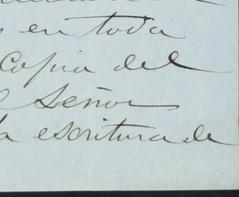 en toda
Copia del
Señor
la escritura de